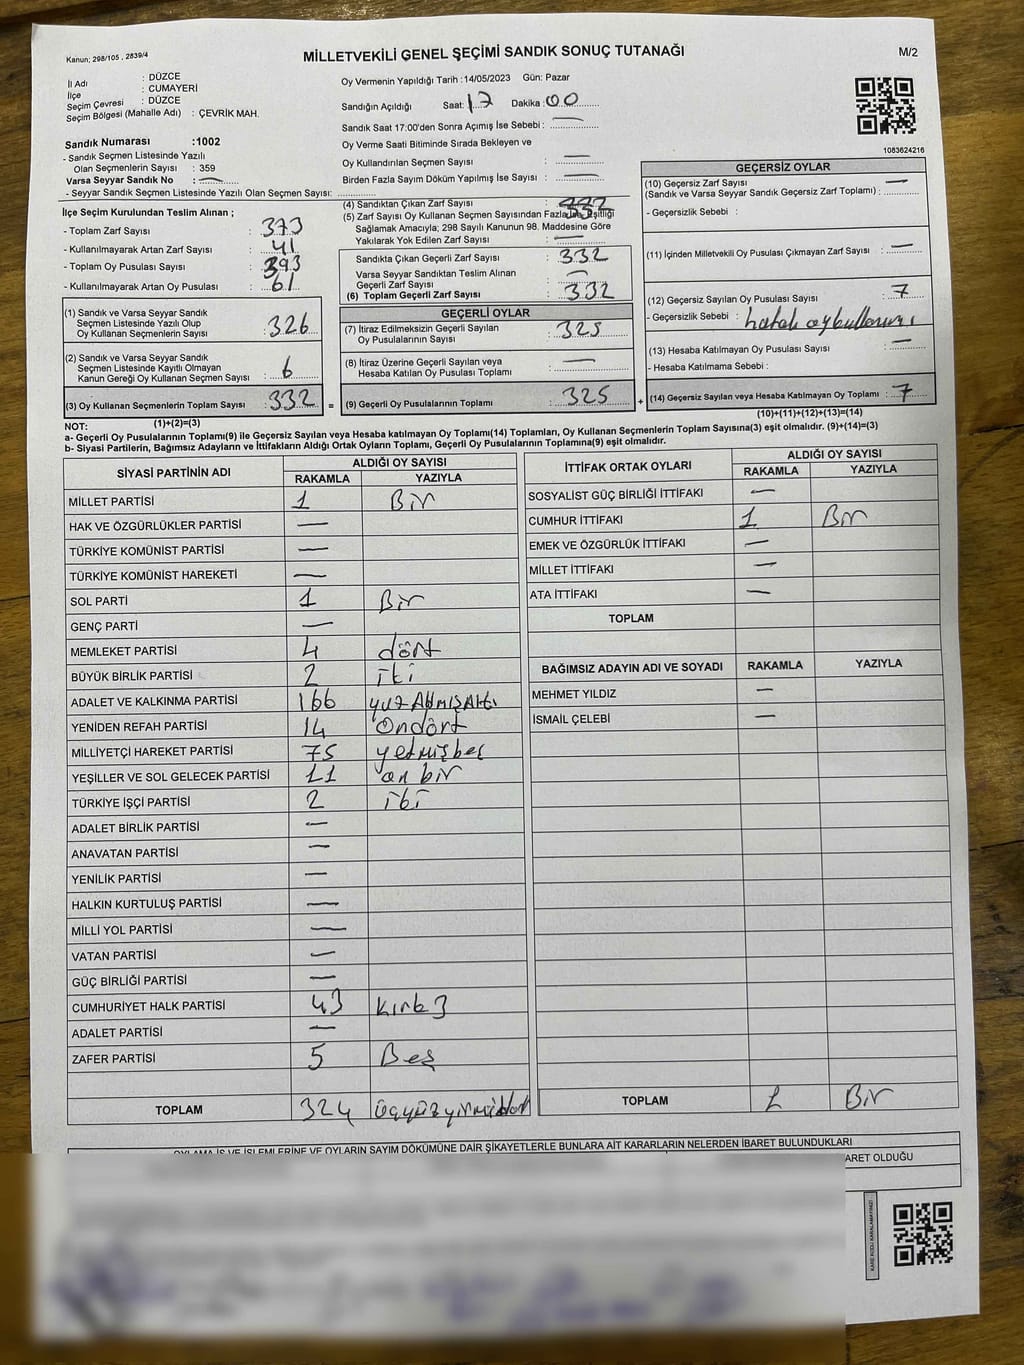 Kanun; 298/105 , 2839/4
MİLLETVEKİLİ GENEL SEÇİMİ SANDIK SONUÇ TUTANAĞI
M/2
İl Adı : DÜZCE
İlçe : CUMAYERİ
Seçim Çevresi : DÜZCE
Seçim Bölgesi (Mahalle Adı) : ÇEVRİK MAH.
Sandık Numarası :1002
- Sandık Seçmen Listesinde Yazılı
Olan Seçmenlerin Sayısı : 359
Varsa Seyyar Sandık No : —
- Seyyar Sandık Seçmen Listesinde Yazılı Olan Seçmen Sayısı: ............
Oy Vermenin Yapıldığı Tarih :14/05/2023 Gün: Pazar
Sandığın Açıldığı Saat: 17 Dakika : 00
Sandık Saat 17:00'den Sonra Açımış İse Sebebi : —
Oy Verme Saati Bitiminde Sırada Bekleyen ve
Oy Kullandırılan Seçmen Sayısı : —
Birden Fazla Sayım Döküm Yapılmış İse Sayısı : —
1083624216
İlçe Seçim Kurulundan Teslim Alınan ;
- Toplam Zarf Sayısı : 373
- Kullanılmayarak Artan Zarf Sayısı : 41
- Toplam Oy Pusulası Sayısı : 393
- Kullanılmayarak Artan Oy Pusulası : 61
(1) Sandık ve Varsa Seyyar Sandık
Seçmen Listesinde Yazılı Olup
Oy Kullanan Seçmenlerin Sayısı : 326
(2) Sandık ve Varsa Seyyar Sandık
Seçmen Listesinde Kayıtlı Olmayan
Kanun Gereği Oy Kullanan Seçmen Sayısı : 6
(3) Oy Kullanan Seçmenlerin Toplam Sayısı : 332 =
(1)+(2)=(3)
(4) Sandıktan Çıkan Zarf Sayısı : 332
(5) Zarf Sayısı Oy Kullanan Seçmen Sayısından Fazla İse, Eşitliği
Sağlamak Amacıyla; 298 Sayılı Kanunun 98. Maddesine Göre
Yakılarak Yok Edilen Zarf Sayısı : —
Sandıkta Çıkan Geçerli Zarf Sayısı : 332
Varsa Seyyar Sandıktan Teslim Alınan
Geçerli Zarf Sayısı : —
(6) Toplam Geçerli Zarf Sayısı : 332
GEÇERLİ OYLAR
(7) İtiraz Edilmeksizin Geçerli Sayılan
Oy Pusulalarının Sayısı : 325
(8) İtiraz Üzerine Geçerli Sayılan veya
Hesaba Katılan Oy Pusulası Toplamı : —
(9) Geçerli Oy Pusulalarının Toplamı : 325 +
GEÇERSİZ OYLAR
(10) Geçersiz Zarf Sayısı : —
(Sandık ve Varsa Seyyar Sandık Geçersiz Zarf Toplamı) : ............
- Geçersizlik Sebebi :
(11) İçinden Milletvekili Oy Pusulası Çıkmayan Zarf Sayısı : —
(12) Geçersiz Sayılan Oy Pusulası Sayısı : 7
- Geçersizlik Sebebi : hatalı oy kullanımı
(13) Hesaba Katılmayan Oy Pusulası Sayısı : —
- Hesaba Katılmama Sebebi :
(14) Geçersiz Sayılan veya Hesaba Katılmayan Oy Toplamı : 7
(10)+(11)+(12)+(13)=(14)
NOT:
a- Geçerli Oy Pusulalarının Toplamı(9) ile Geçersiz Sayılan veya Hesaba katılmayan Oy Toplamı(14) Toplamları, Oy Kullanan Seçmenlerin Toplam Sayısına(3) eşit olmalıdır. (9)+(14)=(3)
b- Siyasi Partilerin, Bağımsız Adayların ve İttifakların Aldığı Ortak Oyların Toplamı, Geçerli Oy Pusulalarının Toplamına(9) eşit olmalıdır.
SİYASİ PARTİNİN ADI ALDIĞI OY SAYISI
RAKAMLA YAZIYLA
MİLLET PARTİSİ 1 Bir
HAK VE ÖZGÜRLÜKLER PARTİSİ —
TÜRKİYE KOMÜNİST PARTİSİ —
TÜRKİYE KOMÜNİST HAREKETİ —
SOL PARTİ 1 Bir
GENÇ PARTİ —
MEMLEKET PARTİSİ 4 dört
BÜYÜK BİRLİK PARTİSİ 2 iki
ADALET VE KALKINMA PARTİSİ 166 yüz Atmış Altı
YENİDEN REFAH PARTİSİ 14 Ondört
MİLLİYETÇİ HAREKET PARTİSİ 75 yetmişbeş
YEŞİLLER VE SOL GELECEK PARTİSİ 11 on bir
TÜRKİYE İŞÇİ PARTİSİ 2 iki
ADALET BİRLİK PARTİSİ —
ANAVATAN PARTİSİ —
YENİLİK PARTİSİ —
HALKIN KURTULUŞ PARTİSİ —
MİLLİ YOL PARTİSİ —
VATAN PARTİSİ —
GÜÇ BİRLİĞİ PARTİSİ —
CUMHURİYET HALK PARTİSİ 43 Kırk 3
ADALET PARTİSİ —
ZAFER PARTİSİ 5 Beş
TOPLAM 324 üçyüzyirmidört
İTTİFAK ORTAK OYLARI ALDIĞI OY SAYISI
RAKAMLA YAZIYLA
SOSYALİST GÜÇ BİRLİĞİ İTTİFAKI —
CUMHUR İTTİFAKI 1 Bir
EMEK VE ÖZGÜRLÜK İTTİFAKI —
MİLLET İTTİFAKI —
ATA İTTİFAKI —
TOPLAM
BAĞIMSIZ ADAYIN ADI VE SOYADI RAKAMLA YAZIYLA
MEHMET YILDIZ —
İSMAİL ÇELEBİ —
TOPLAM 1 Bir
OYLAMA İŞ VE İŞLEMLERİNE VE OYLARIN SAYIM DÖKÜMÜNE DAİR ŞİKAYETLERLE BUNLARA AİT KARARLARIN NELERDEN İBARET BULUNDUKLARI
ARET OLDUĞU
KARE KODU KARALAMAYINIZ!